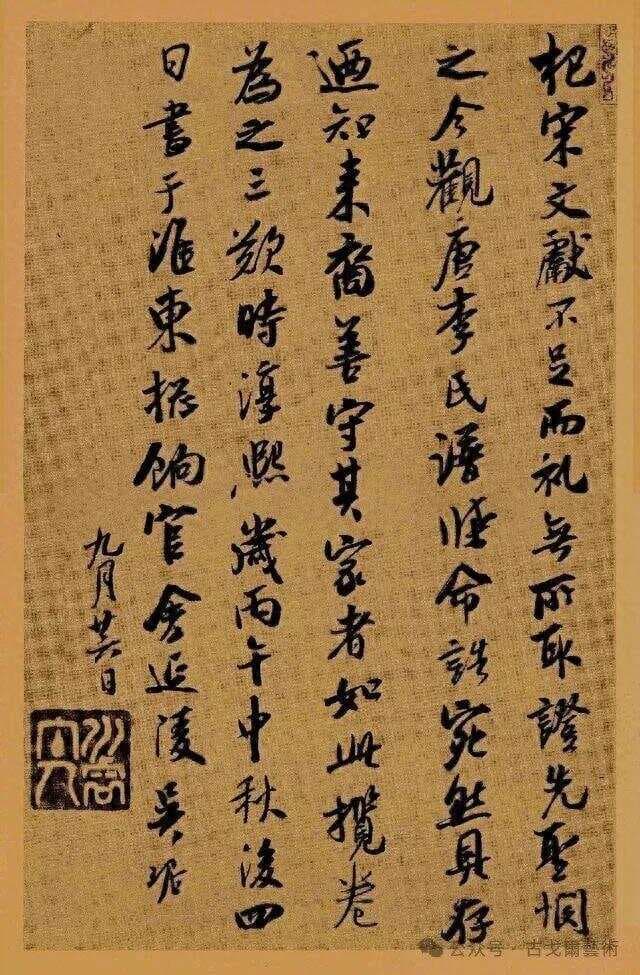 杞宋文獻不足而礼無所取證先聖悯
之今觀唐李氏譜牒命誥宛然具存
迺知来裔善守其家者如此攬卷
為之三歎時淳熙歲丙午中秋後四
日書于淮東揔餉官舍延陵吴琚
九月廿六日
公众号 · 古戈爾藝術